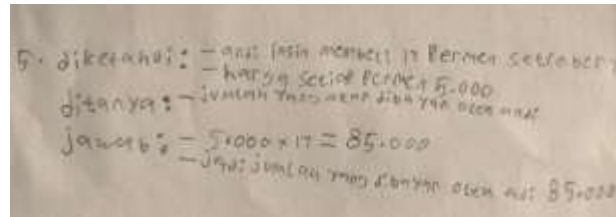 5. diketahui: - andi ingin membeli 17 Permen setroberi
- harga setiap Permen 5.000
ditanya: - jumlah yang akan dibayar oleh andi
jawab: - 5.000 x 17 = 85.000
- jadi jumlah yang dibayar oleh andi 85.000